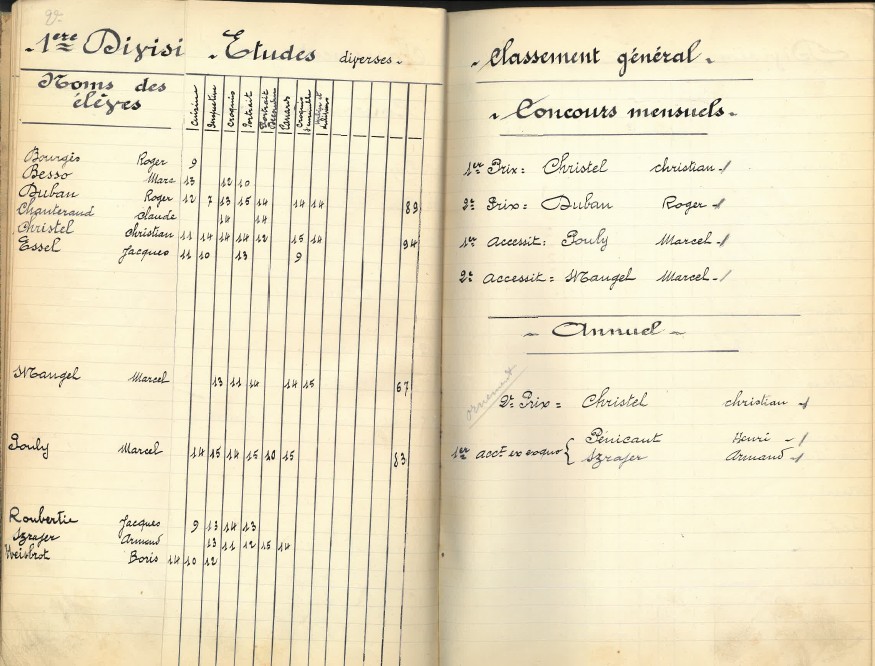 22
1ere Divisi Etudes diverses.
Noms des élèves
Cuisine Croquis Portrait Croquis
Bourgès Roger 9
Besso Marc 13 12 10
Duban Roger 12 7 13 15 14 14 14 89
Chanteraud Claude 14 14
Christel Christian 11 14 14 14 12 15 14 94
Essel Jacques 11 10 13 9
Mangel Marcel 13 11 14 14 15 67
Pouly Marcel 14 15 14 15 10 15 83
Roubertie Jacques 9 13 14 13
Szrajer Armand 13 11 12 15 14
Weisbrot Boris 14 10 12
Classement général.
Concours mensuels.
1er Prix = Christel christian
2e Prix = Duban Roger
1er Accessit = Pouly Marcel
2e Accessit = Mangel Marcel
Annuel
ornement
2e Prix = Christel christian
1er acct ex exquo { Pénicaut Henri
Szrajer Armand